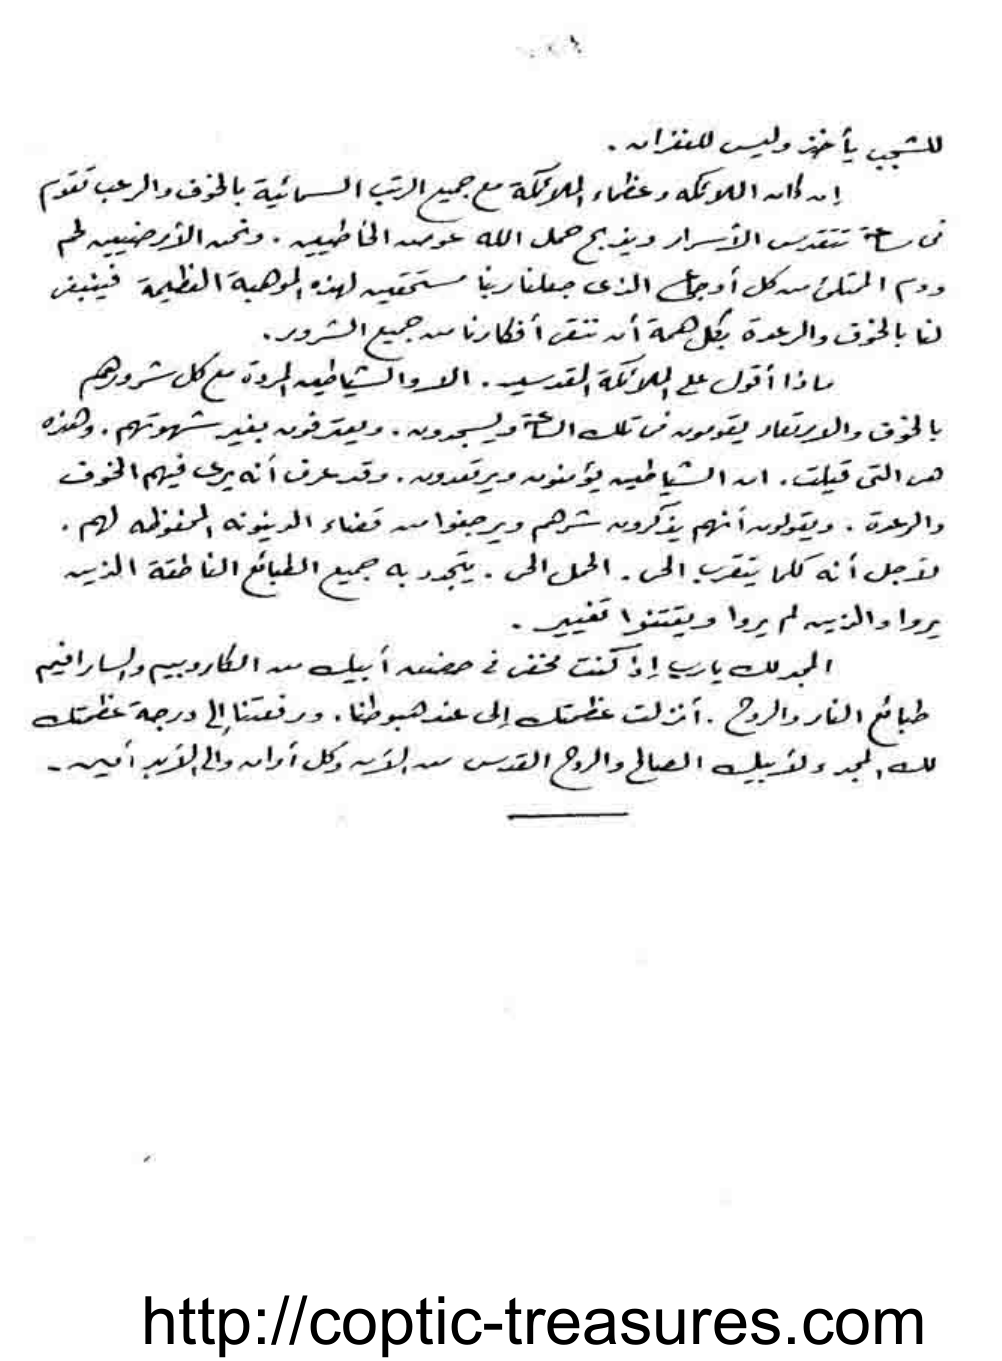 للشجب يأخذ وليس للغفران .
إن كان الملائكه وعظماء الملائكة مع جميع الرتب السمائية بالخوف والرعب تقوم
فى ساعة تتقدس الأسرار ويذبح حمل الله عوض الخاطيين . ونحن الأرضيين لحم
ودم الممتلئ من كل أوجاع الذى جعلنا ربنا مستحقين لهذه الموهبة العظيمة فينبغى
لنا بالخوف والرعدة بكل همة أن ننقى أفكارنا من جميع الشرور .
ماذا أقول على الملائكة القدسين . الا والشياطين المردة مع كل شرورهم
بالخوف والارتعاد يقومون فى تلك الساعة ويسجدون . ويعترفون بغير شهوتهم . وهذه
هى التى قيلت . ان الشياطين يؤمنون ويرتعدون . وقد عرف أنه يرى فيهم الخوف
والرعدة . ويقولون أنهم يذكرون شرهم ويرجفوا من قضاء الدينونه المحفوظه لهم .
لأجل أنه كلما يتقرب الحى . الحمل الحى . يتجدد به جميع الطبائع الناطقة الذين
يروا والذين لم يروا ويقتنوا تغيير .
المجد لك يارب إذ كنت مخفى فى حضن أبيك من الكاروبيم والسارافيم
طبائع النار والروح . أنزلت عظمتك إلى عند هبوطنا . ورفعتنا إلى درجة عظمتك
لك المجد ولأبيك الصالح والروح القدس من الآن وكل أوان والى الأبد أمين -
http://coptic-treasures.com